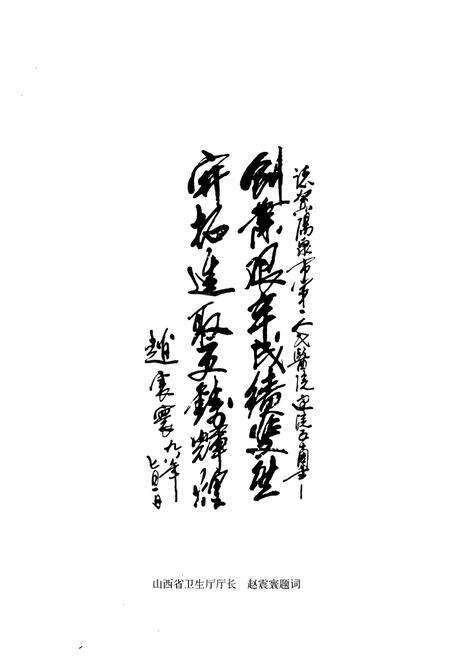 读贺阳泉市第一人民医院建院五十周年
创业艰辛成绩斐然
开拓进取更铸辉煌
赵震寰 九八年
七月一日
山西省卫生厅厅长 赵震寰题词